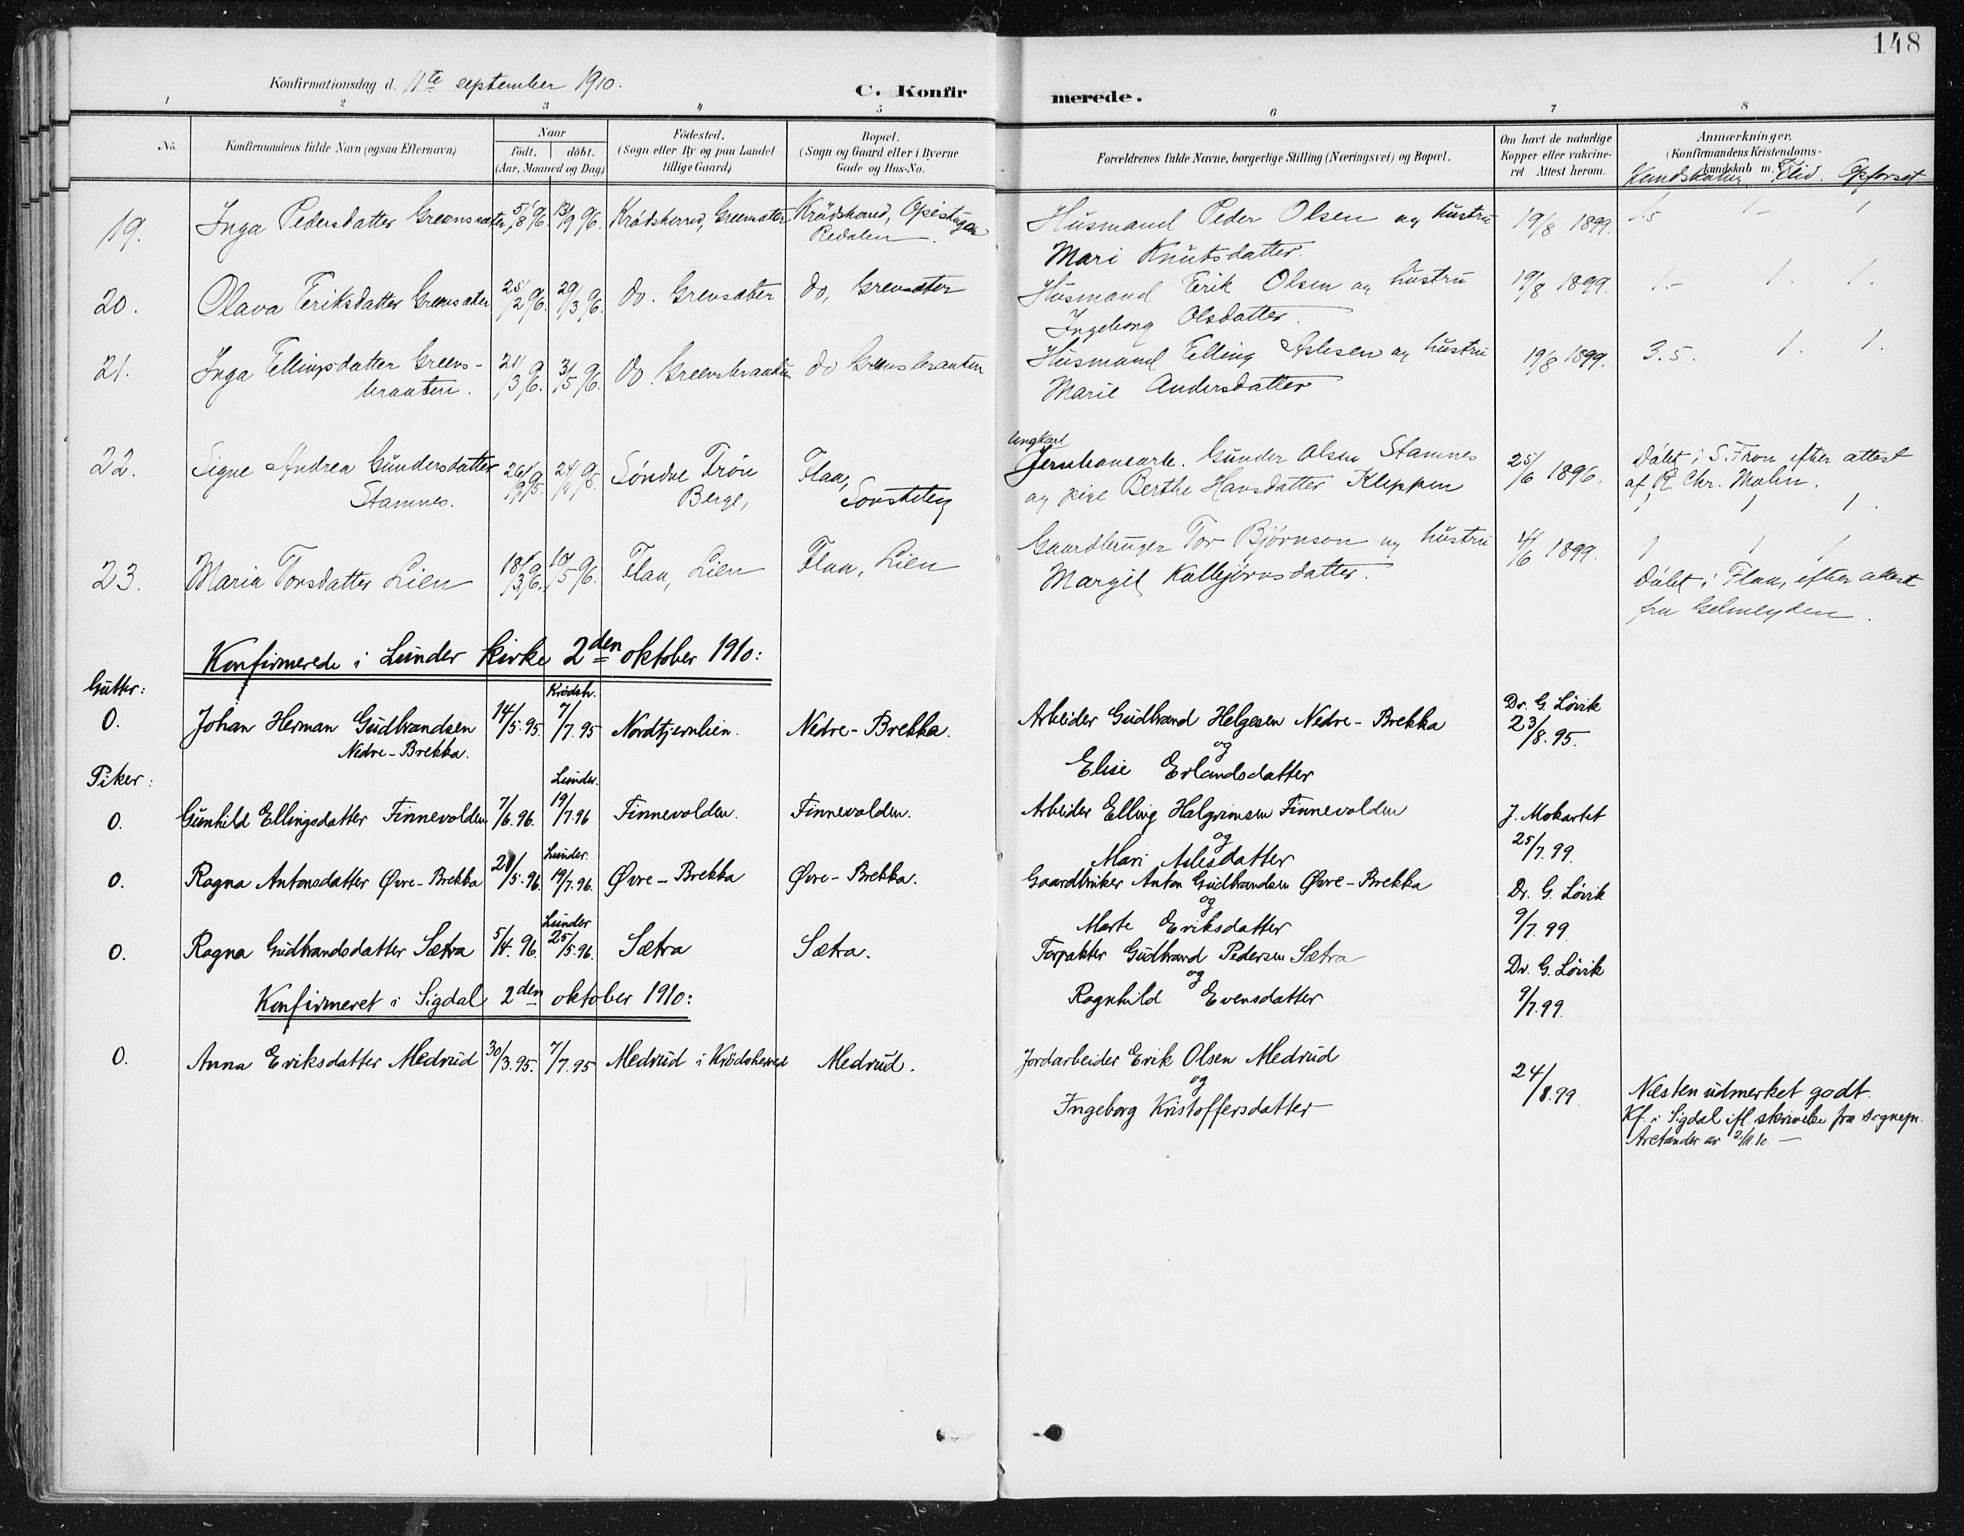 148
Konfirmationsdag d. 11te september 1910.
C. Konfirmerede.
1 2 3 4 5 6 7 8
No.
Konfirmandens fulde Navn (ogsaa Efternavn)
Naar
født. døbt.
(Aar, Maaned og Dag)
Fødested.
(Sogn eller By og paa Landet
tillige Gaard)
Bopæl.
(Sogn og Gaard eller i Byerne
Gade og Hus-No.
Forældrenes fulde Navne, borgerlige Stilling (Næringsvei) og Bopæl.
Om havt de naturlige
Kopper eller vakcine-
ret. Attest herom.
Anmærkninger.
(Konfirmandens Kristendoms-
kundskab m. m.)
Kundskaber Flid. Opførsel
19. Inga Pedersdatter Greensæter 5/8 96. 13/9 96. Krødsherred, Greensæter Krødsherred, Opistugen Husmand Peder Olsen og hustru 19/8 1899. 1.5 1- 1
Redalen Mari Knutsdatter.
20. Olava Eriksdatter Greensæter 25/2 96. 29/3 96. do. Grensæter do, Grensæter Husmand Erik Olsen og hustru 19/8 1899. 1.- 1. 1.
Ingeborg Olsdatter.
21. Inga Ellingsdatter Greens- 21/3 96. 31/5 96. do. Greensbraaten do Greensbraaten Husmand Elling Aslesen og hustru 19/8 1899. 3.5. 1. 1.
braaten. Marie Andersdatter
22. Signe Andrea Gundersdatter 26/9 95. 24/ 95 Søndre Frøn Flaa, Ungkarl Jernbanearb. Gunder Olsen Stamnes 25/6 1896. Døbt i S. Fron efter attest
Stamnes. Berge, og pige Berthe Hansdatter Kleppen af R. Chr. Malin.
1 1 1.
23. Maria Torsdatter Lien 18/3 96. 10/5 96. Flaa, Lien Flaa, Lien Gaardbruger Tor Bjørnson og hustru 4/6 1899. 1 1 1
Margit Kolbjørnsdatter. Døbt i Flaa, efter attest
fra
Konfirmerede i Lunder kirke 2den oktober 1910:
Gutter:
Krødsh.
0. Johan Herman Gudbrandsen 14/5.95. 7/7.95 Nordtjernlien. Nedre-Brekka. Arbeider Gudbrand Helgesen Nedre-Brekka Dr. G. Løvik
Nedre-Brekka. og 23/8.95.
Elise Erlandsdatter
Piker:
Lunder.
0. Gunhild Ellingsdatter Finnevolden 7/6.96. 19/7.96 Finnevolden. Finnevolden. Arbeider Elling Halgrimsen Finnevolden J. Mokartet
og 25/7.99.
Mari Aslesdatter
Lunder.
0. Ragna Antonsdatter Øvre-Brekka 21/5.96. 19/7.96. Øvre-Brekka Øvre-Brekka. Gaardbruker Anton Gudbrandsen Øvre-Brekka Dr. G. Løvik
og 9/7.99.
Marte Eriksdatter
Lunder
0. Ragna Gudbrandsdatter Sætra 5/4.96. 25/5.96. Sætra Sætra. Forpakter Gudbrand Pedersen Sætra Dr. G. Løvik
og 9/7.99.
Ragnhild Evensdatter
Konfirmeret i Sigdal 2den oktober 1910:
0. Anna Eriksdatter Medrud 30/3.95. 7/7.95 Medrud i Krødsherred Medrud. Jordarbeider Erik Olsen Medrud 24/8.99.
og
Ingeborg Kristoffersdatter
Næsten udmerket godt.
Kf. i Sigdal ifl. skrivelse fra sognepr.
Arctander av 2/11 10. -